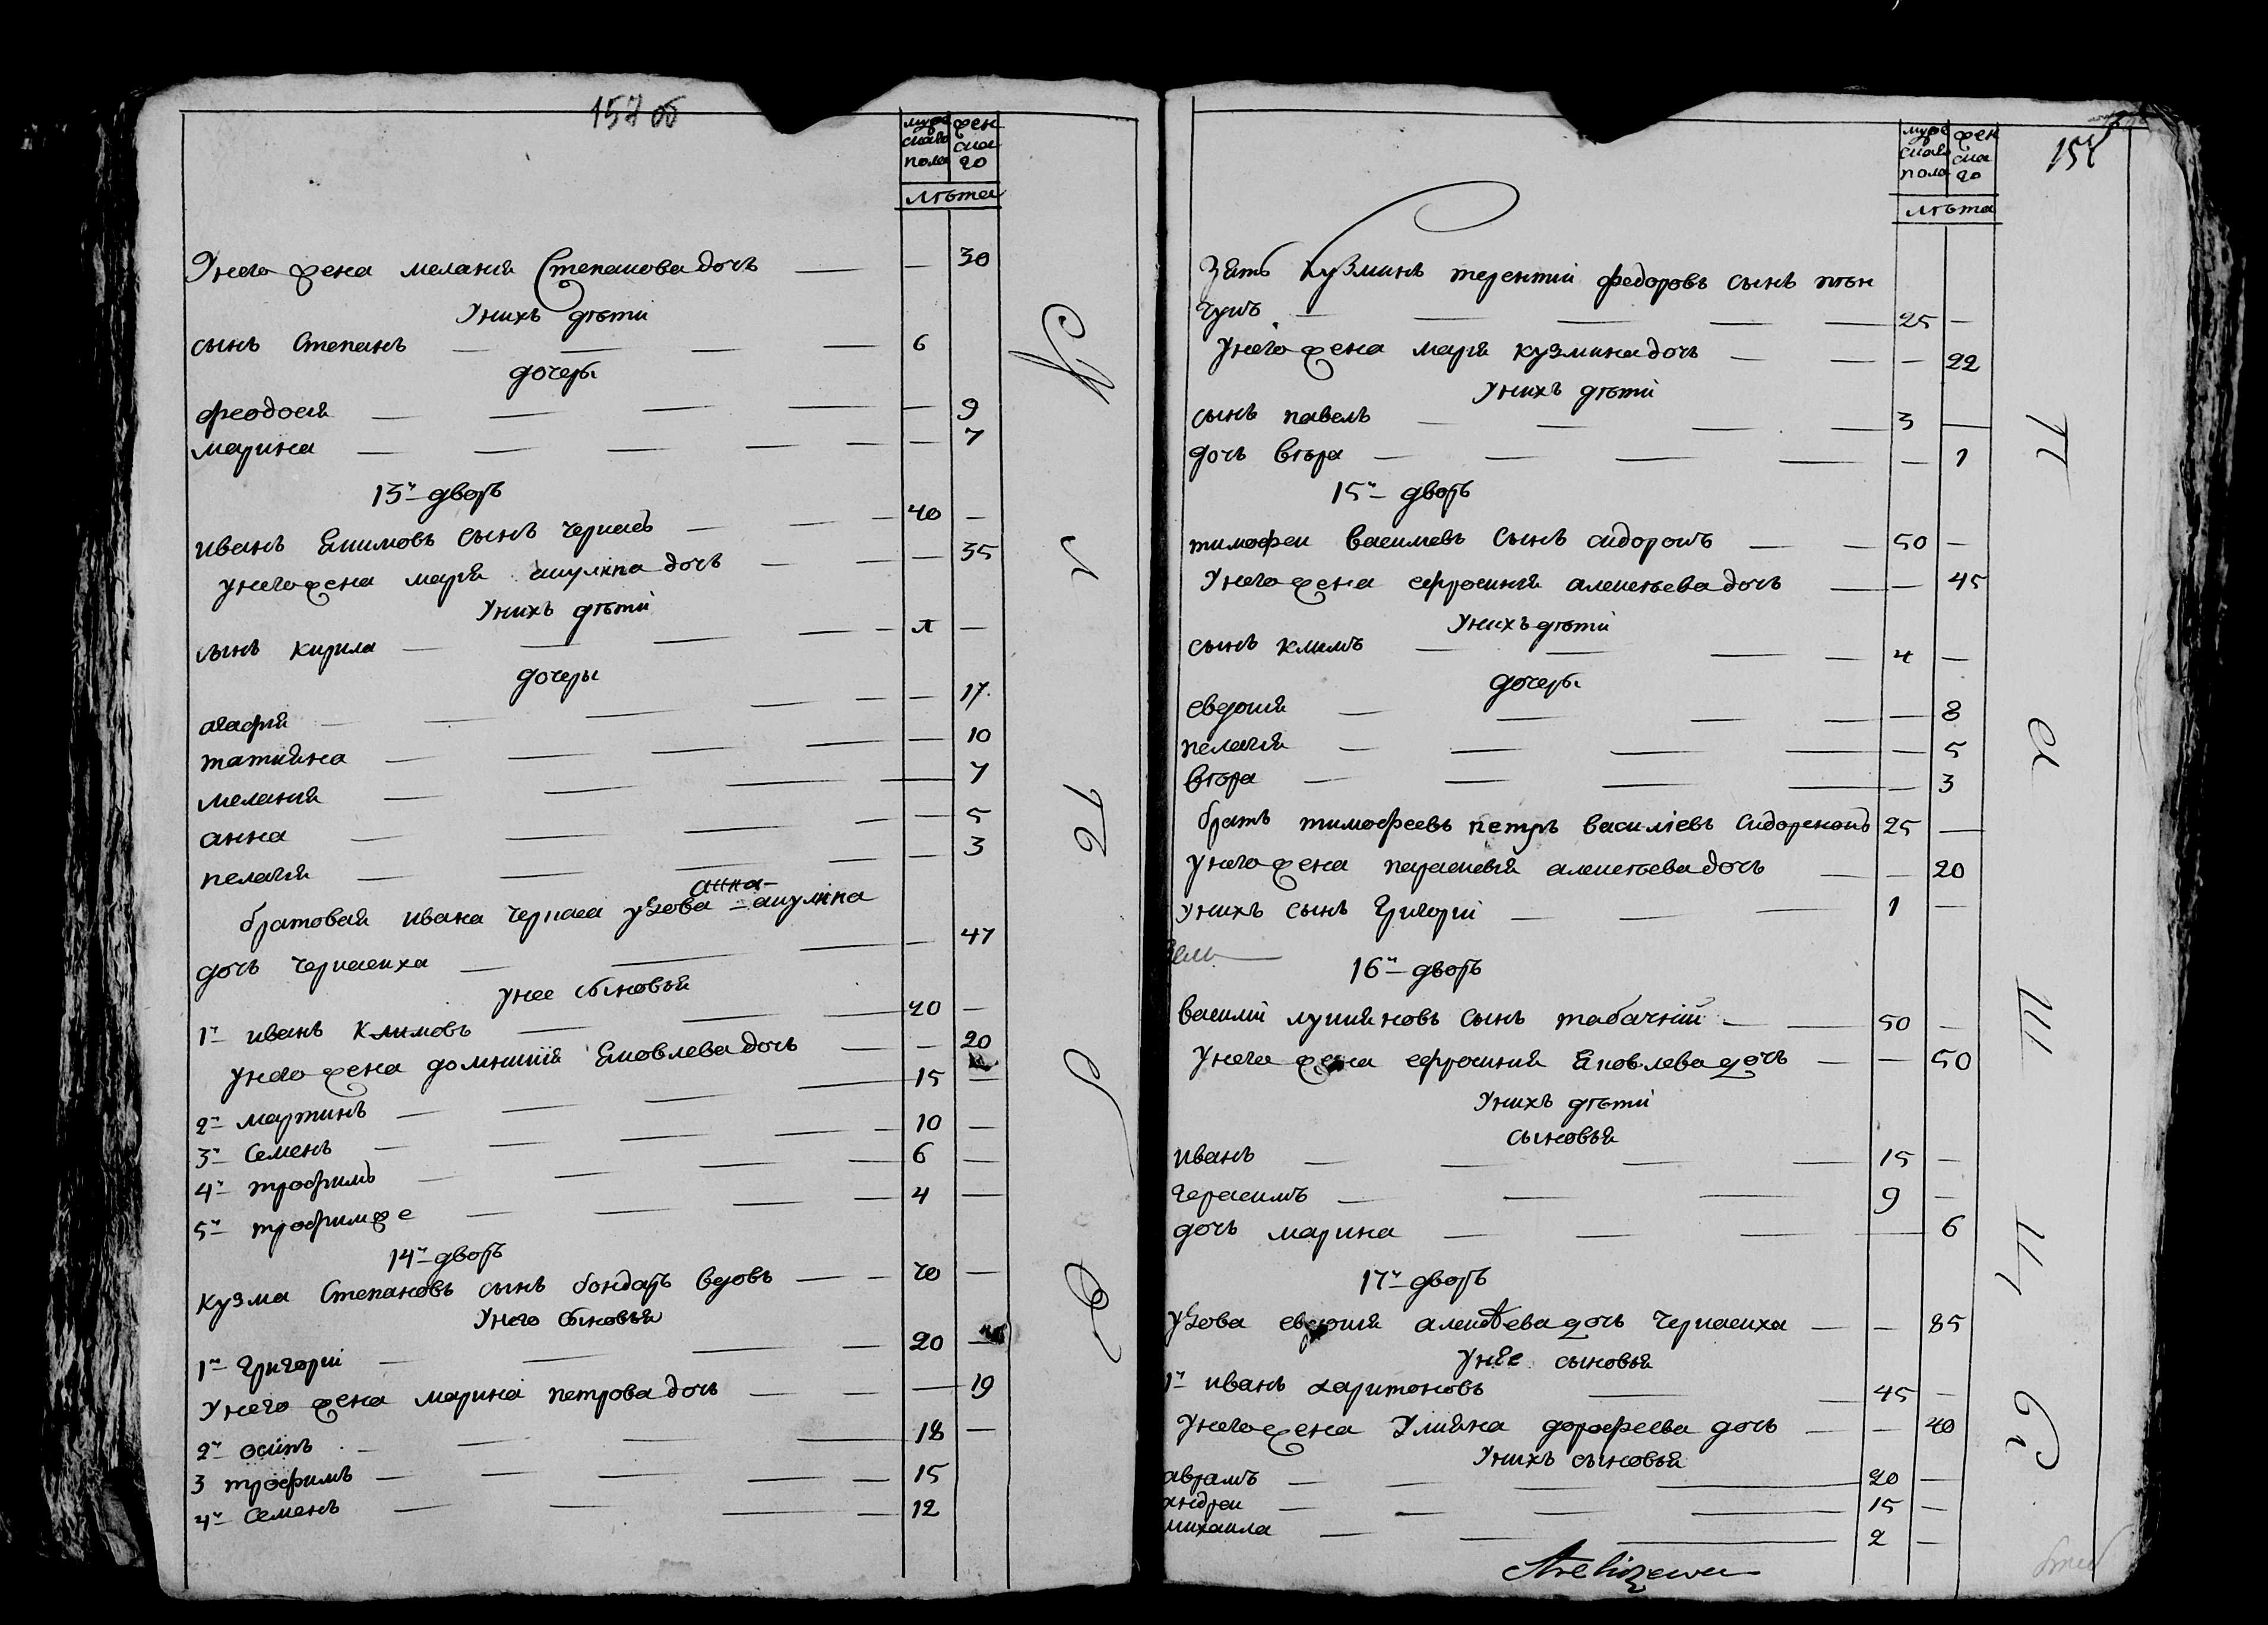 157 об
мужескаго пола
женскаго
лѣта
Унего жена меланія Степанова дочь — — 30
Унихъ дѣти
сынъ Степанъ — 6
дочеры
феодосія — — 9
марина — — 7
13й дворъ
иванъ Екимовъ сынъ черкасъ — 40 —
унего жена марія акулина дочь — — 35
Унихъ дѣти
сынъ кирила — —
дочеры
агафія — — 17
татияна — — 10
меланія — — 7
анна — — 5
пелагія — — 3
анна
братовая ивана черкаса удова акулина
дочь черкасиха — — 47
унее сыновья
1й иванъ Климовъ — 20 —
унего жена домникія Яковлева дочь — — 20
2й мартинъ — 15 —
3й Семенъ — 10 —
4й трофимъ — 6 —
5й трофимже — 4 —
14й дворъ
кузма Степановъ сынъ бондарь вдовъ — 70 —
Унего сыновья
1й Григорій — 20 —
Унего жена марина петрова дочь — — 19
2й осипъ — 18 —
3 трофимъ — 15
4й Семенъ — 12
158
мужескаго пола
женскаго
лѣта
Зять Кузминъ терентій федоровъ сынъ
— 25 —
Унего жена марія кузмина дочь — — 22
Унихъ дѣти
сынъ павелъ — 3 —
дочь вѣра — — 1
15й дворъ
тимофеи васимевъ сынъ — 50 —
Унего жена ефросинія алексѣева дочь — — 45
Унихъ дѣти
сынъ климъ — 4 —
дочеры
евдокия — — 8
пелагія — — 5
вѣра — — 3
братъ тимофеевъ петръ василіевъ Сидоренокъ 25 —
унего жена параскевія алексѣева дочь — — 20
унихъ сынъ Григорій — 1 —
16й дворъ
василій лукияновъ сынъ табачній — 50 —
Унего жена ефросиния Яковлева дочь — — 50
Унихъ дѣти
сыновья
иванъ — 15 —
герасимъ — 9 —
дочь марина — — 6
17й дворъ
удова евдокия алексѣева дочь черкасиха — — 85
унѣе сыновья
1й иванъ харитоновъ — 45 —
унего жена Улияна дорофеева дочь — — 40
Унихъ сыновья
аврамъ — 20 —
андреи — 15 —
михаила — 2 —